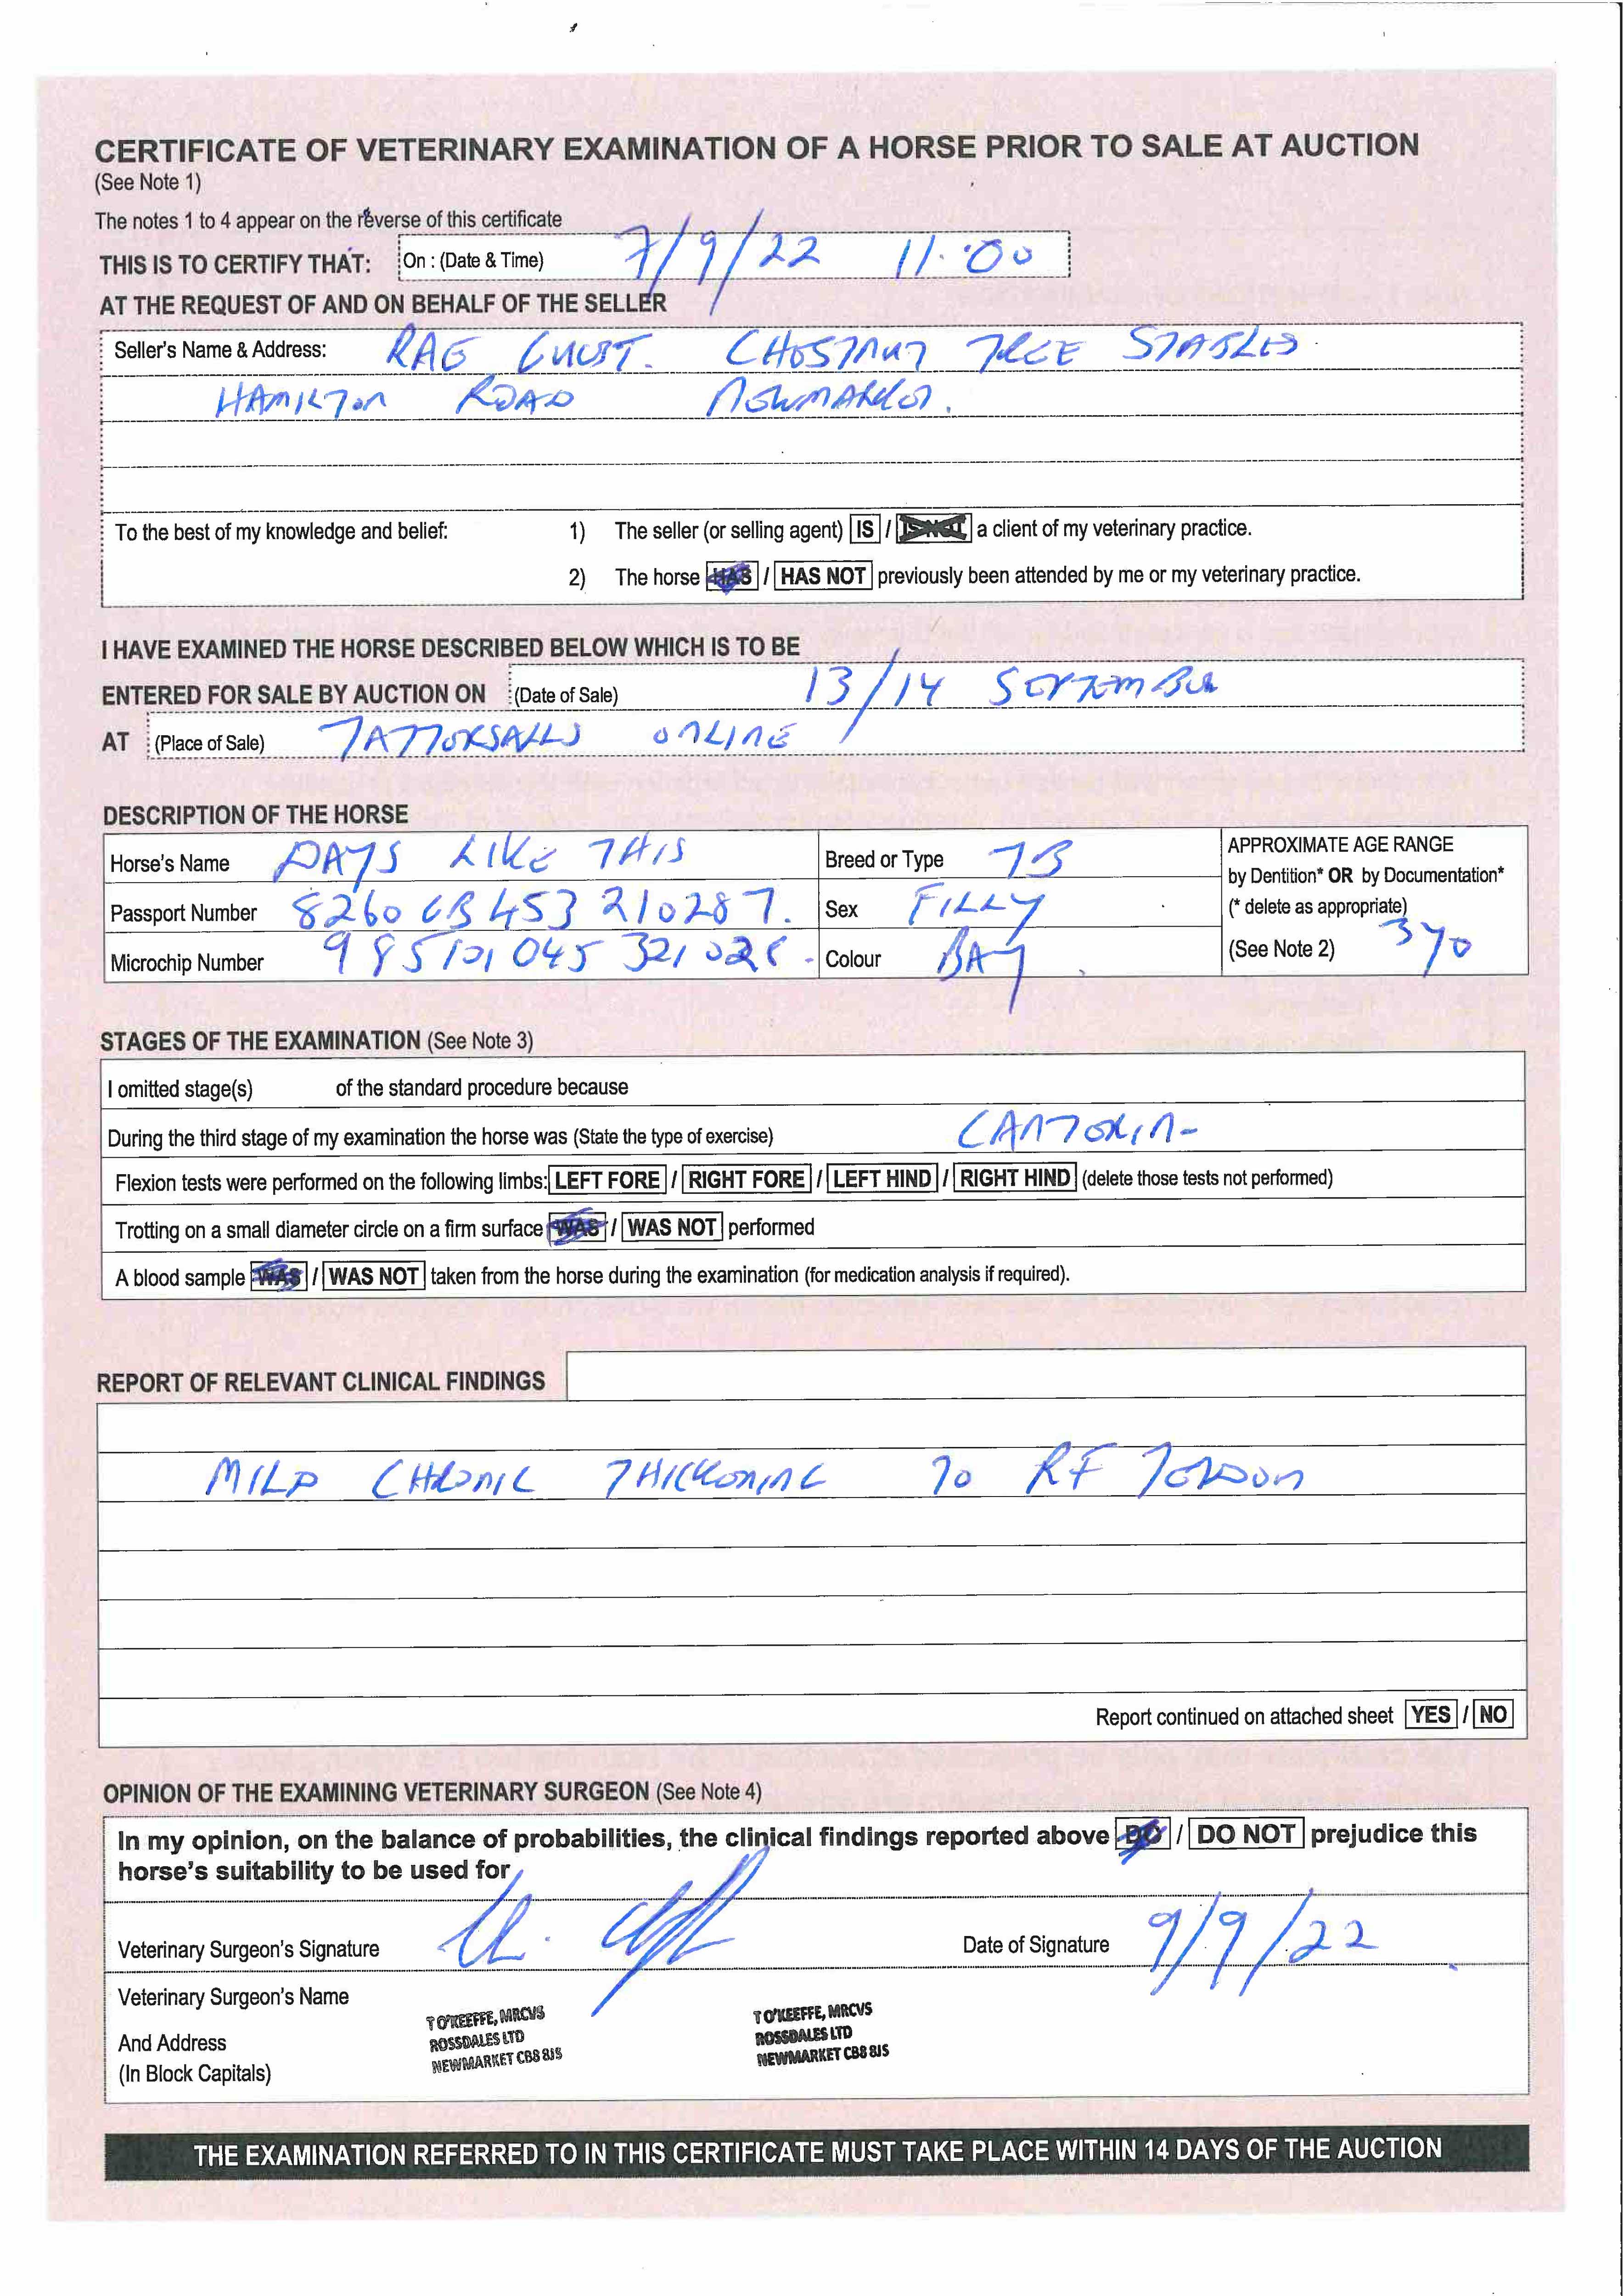 CERTIFICATE OF VETERINARY EXAMINATION OF A HORSE PRIOR TO SALE AT AUCTION
(See Note 1)
The notes 1 to 4 appear on the reverse of this certificate
THIS IS TO CERTIFY THAT: On : (Date & Time) 7/9/22 11:00
AT THE REQUEST OF AND ON BEHALF OF THE SELLER
Seller's Name & Address: RAE GUEST. CHESTNUT TREE STABLES
HAMILTON ROAD NEWMARKET.
To the best of my knowledge and belief: 1) The seller (or selling agent) IS / IS NOT a client of my veterinary practice.
2) The horse HAS / HAS NOT previously been attended by me or my veterinary practice.
I HAVE EXAMINED THE HORSE DESCRIBED BELOW WHICH IS TO BE
ENTERED FOR SALE BY AUCTION ON (Date of Sale) 13/14 SEPTEMBER
AT (Place of Sale) TATTERSALLS ONLINE
DESCRIPTION OF THE HORSE
Horse's Name DAYS LIKE THIS Breed or Type TB APPROXIMATE AGE RANGE
by Dentition* OR by Documentation*
Passport Number 8260 GB 453 210287. Sex FILLY (* delete as appropriate)
Microchip Number 985101045 321028 Colour BAY (See Note 2) 3yo
STAGES OF THE EXAMINATION (See Note 3)
I omitted stage(s) of the standard procedure because
During the third stage of my examination the horse was (State the type of exercise)
Flexion tests were performed on the following limbs: LEFT FORE / RIGHT FORE / LEFT HIND / RIGHT HIND (delete those tests not performed)
Trotting on a small diameter circle on a firm surface WAS / WAS NOT performed
A blood sample WAS / WAS NOT taken from the horse during the examination (for medication analysis if required).
REPORT OF RELEVANT CLINICAL FINDINGS
MILD CHRONIC THICKENING TO RF TENDON
Report continued on attached sheet YES / NO
OPINION OF THE EXAMINING VETERINARY SURGEON (See Note 4)
In my opinion, on the balance of probabilities, the clinical findings reported above DO / DO NOT prejudice this
horse's suitability to be used for
Veterinary Surgeon's Signature Date of Signature 9/9/22
Veterinary Surgeon's Name
And Address
(In Block Capitals)
T O'KEEFFE, MRCVS
ROSSDALES LTD
NEWMARKET CB8 8JS
T O'KEEFFE, MRCVS
ROSSDALES LTD
NEWMARKET CB8 8JS
THE EXAMINATION REFERRED TO IN THIS CERTIFICATE MUST TAKE PLACE WITHIN 14 DAYS OF THE AUCTION